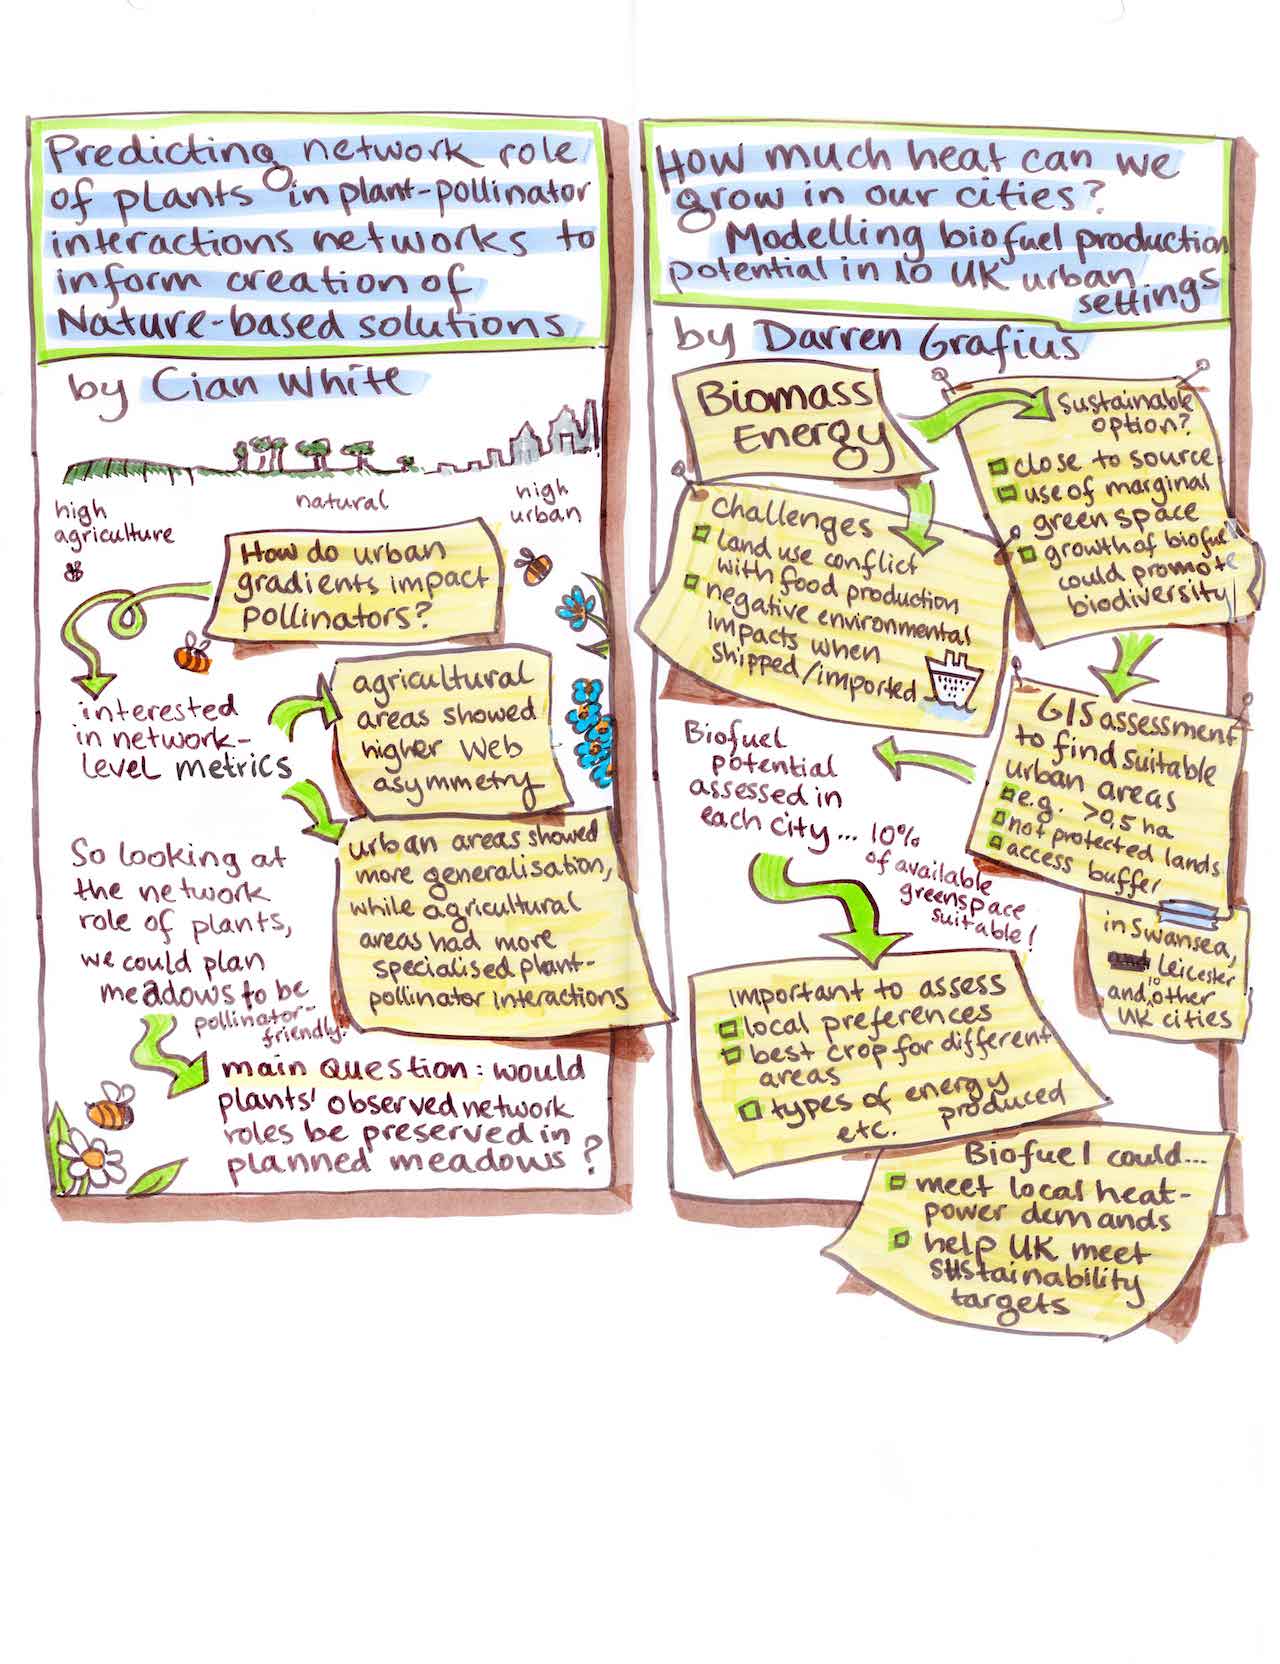 Predicting network role
of plants in plant-pollinator
interactions networks to
inform creation of
Nature-based solutions
by Cian White
high
agriculture
natural
high
urban
How do urban
gradients impact
pollinators?
interested
in network-
level metrics
agricultural
areas showed
higher Web
asymmetry
urban areas showed
more generalisation,
while agricultural
areas had more
specialised plant-
pollinator interactions
So looking at
the network
role of plants,
we could plan
meadows to be
pollinator-
friendly.
main question: would
plants' observed network
roles be preserved in
planned meadows?
How much heat can we
grow in our cities?
Modelling biofuel production
potential in 10 UK urban
settings
by Darren Grafius
Biomass
Energy
Sustainable
option?
close to source
use of marginal
green space
growth of biofuel
could promote
biodiversity
challenges
land use conflict
with food production
negative environmental
impacts when
shipped/imported
GIS assessment
to find suitable
urban areas
e.g. >0,5 ha
not protected lands
access buffer
in Swansea,
Leicester
and 10 other
UK cities
Biofuel
potential
assessed in
each city... 10%
of available
greenspace
suitable!
important to assess
local preferences
best crop for different
areas
types of energy
produced
etc.
Biofuel could...
meet local heat-
power demands
help UK meet
sustainability
targets